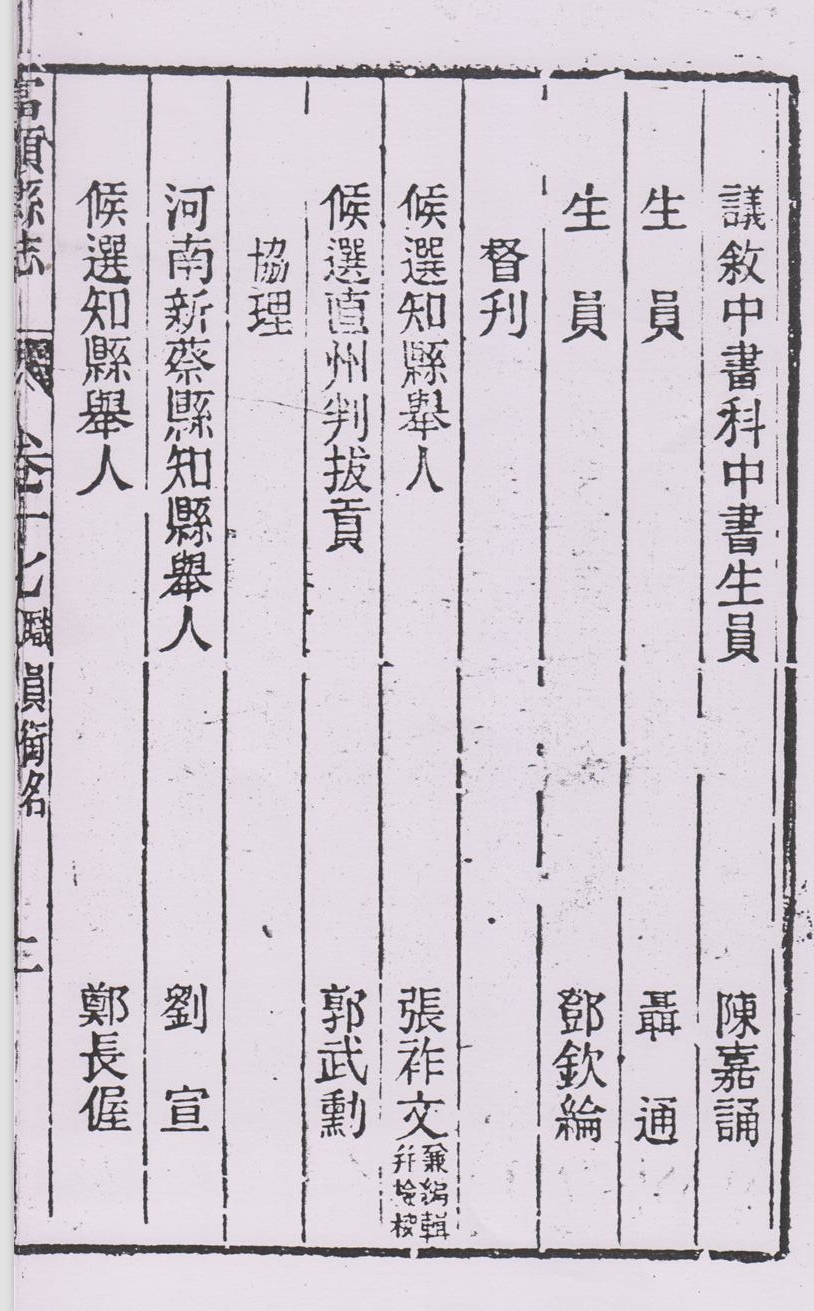 議敘中書科中書生員 陳嘉誦
生員 聶通
生員 鄧欽綸
督刋
候選知縣舉人 張祚文 兼編輯并檢校
候選直州判拔貢 郭武勳
協理
河南新蔡縣知縣舉人 劉宣
候選知縣舉人 鄭長偓
富順縣志 卷十七 職員銜名 三